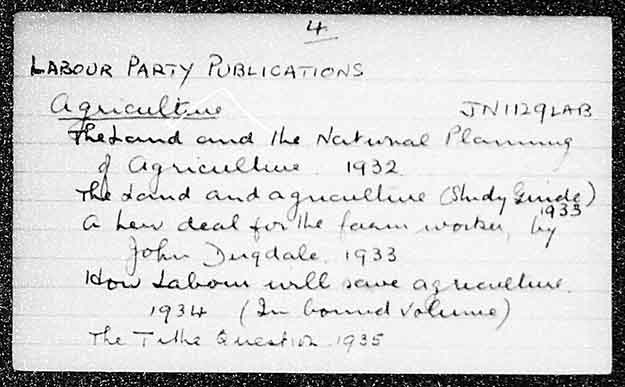 4
LABOUR PARTY PUBLICATIONS
Agriculture JN1129LAB
The Land and the National Planning
of Agriculture. 1932
The Land and agriculture (Study Guide)
1933
A new deal for the farm worker, by
John Dugdale. 1933
How Labour will save agriculture.
1934 (In bound volume)
The Tithe Question. 1935